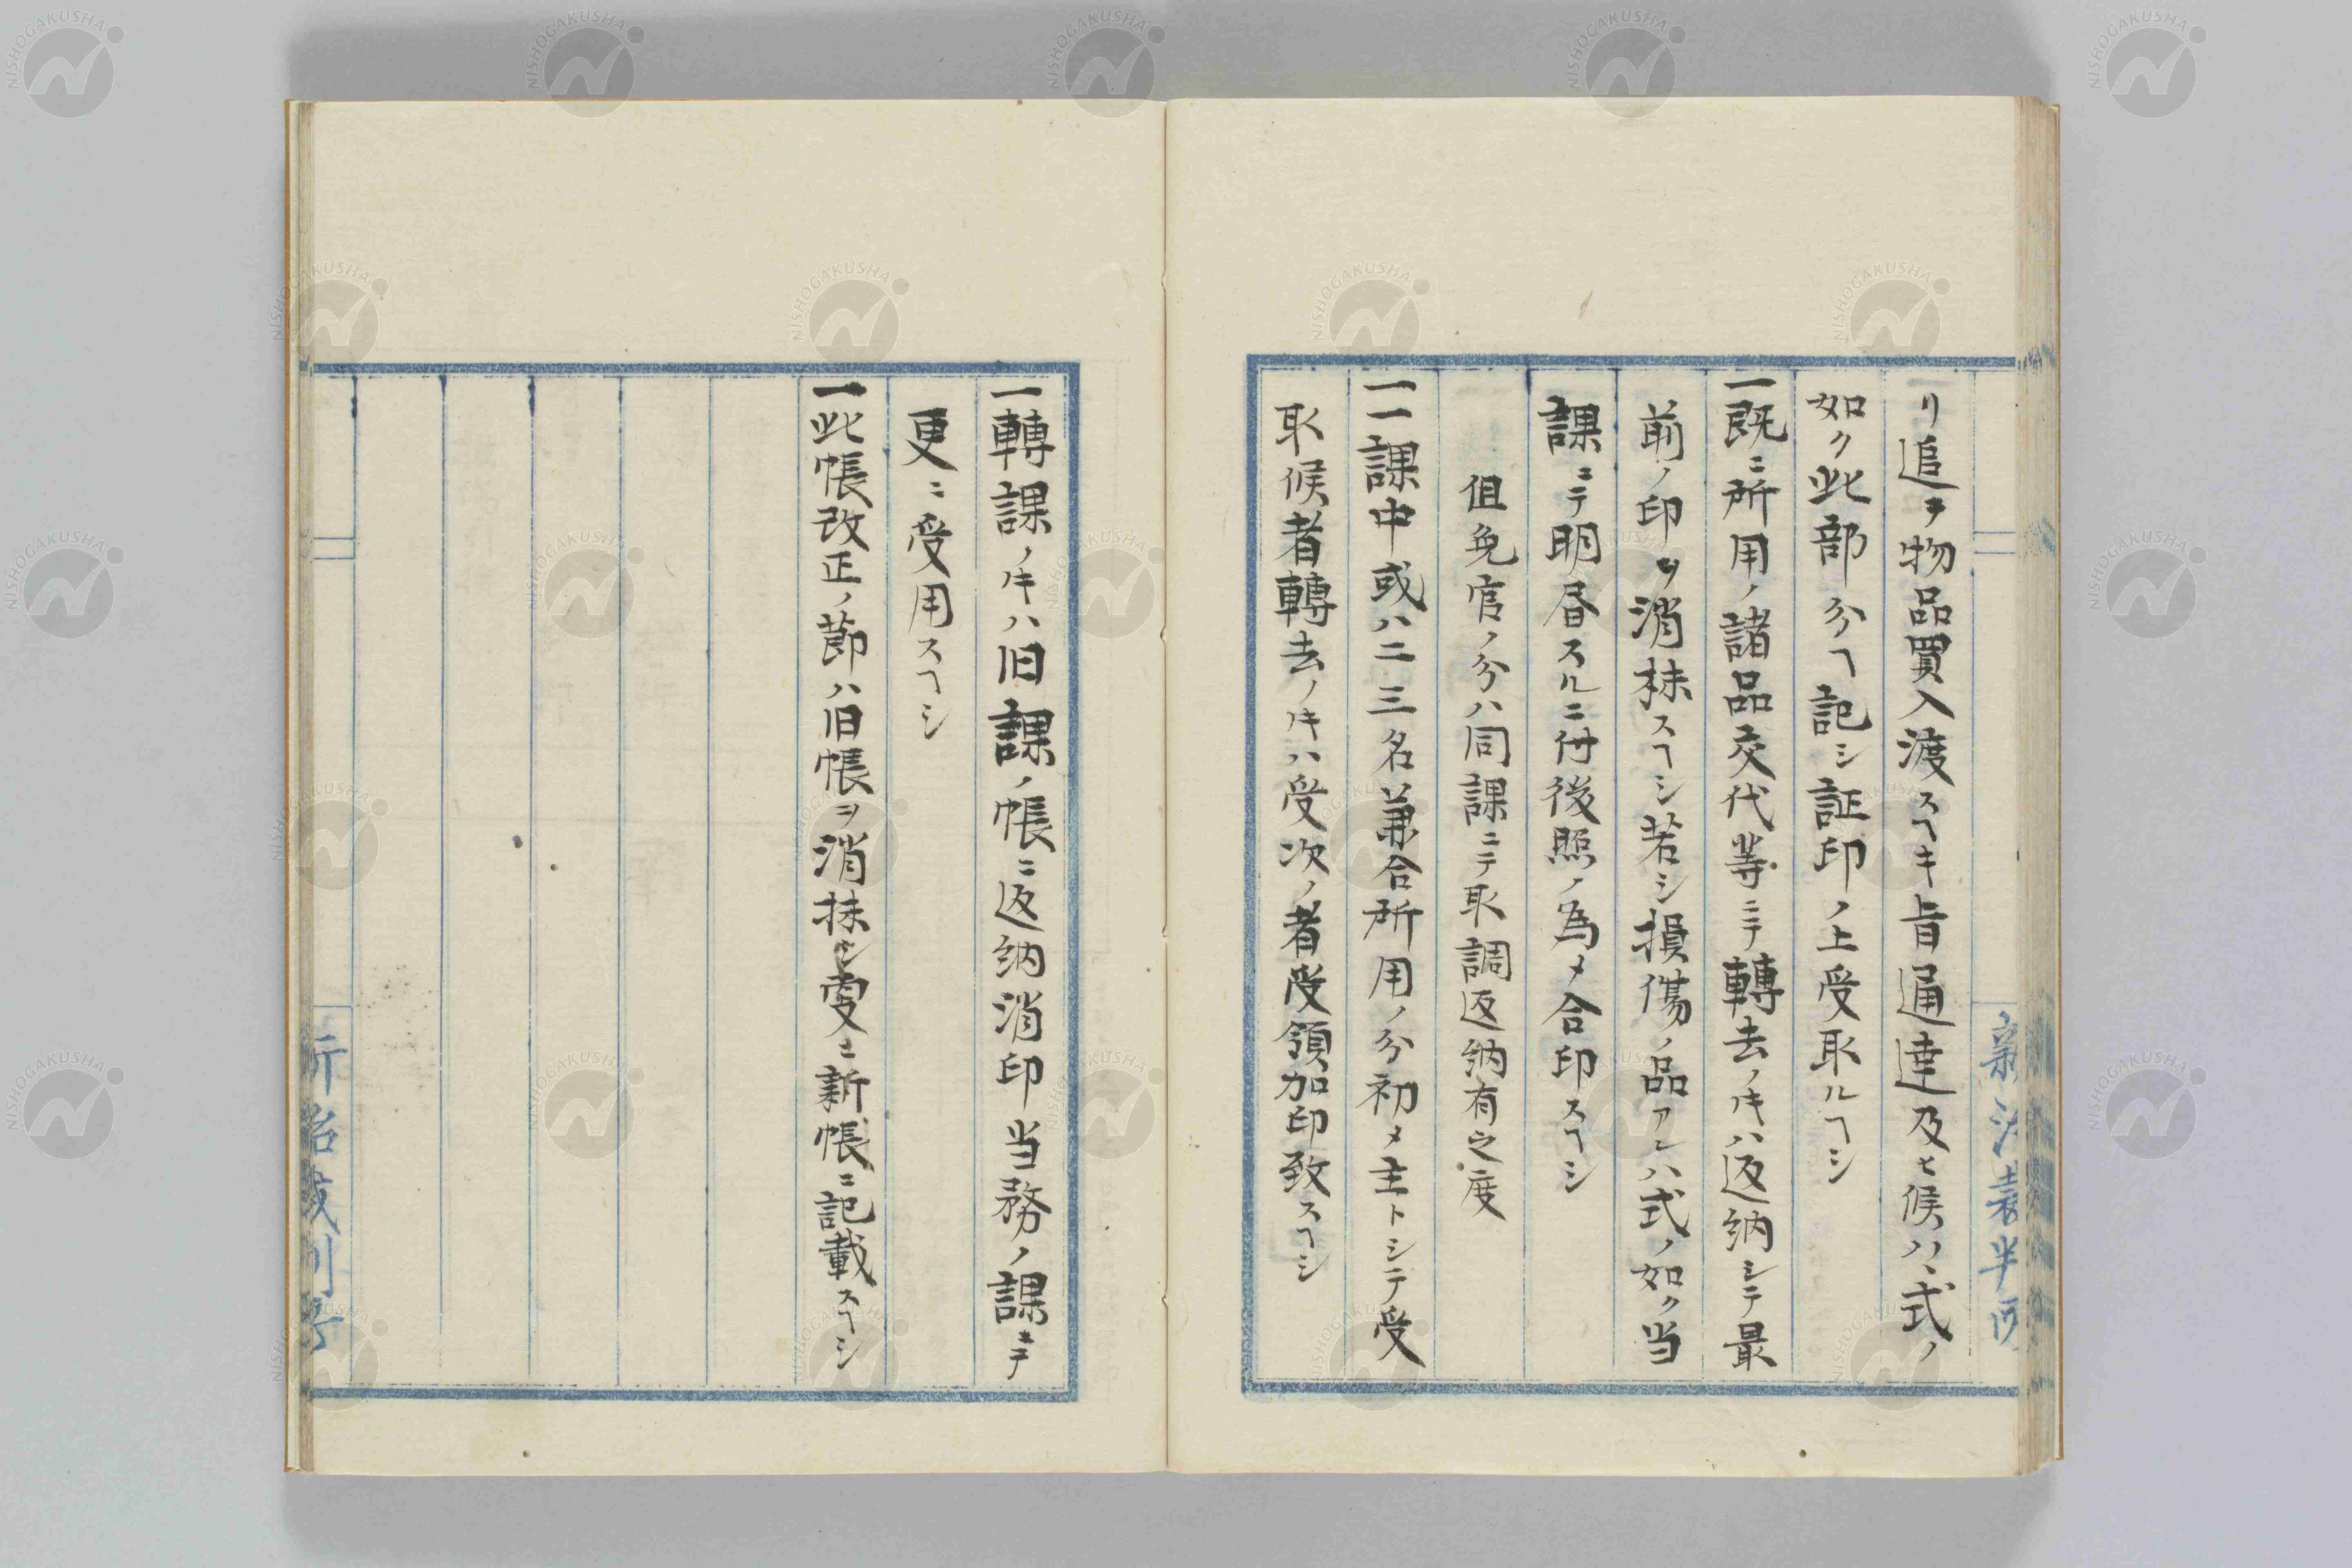 リ追テ物品買入渡スヘキ旨通達及ヒ候ハヽ式ノ
如ク此部分ヘ記シ証印ノ上受取ルヘシ
一既ニ所用ノ諸品交代等ニテ轉去ノキハ返納シテ最
前ノ印ヲ消抹スヘシ若シ損傷ノ品アレハ式ノ如ク当
課ニテ明㫺スルニ付後照ノ為メ合印スヘシ
但免官ノ分ハ同課ニテ取調返納有之度
一一課中或ハ二三名兼合所用ノ分初メ主トシテ受
取候者轉去ノキハ受次ノ者受領加印致スヘシ
一轉課ノキハ旧課ノ帳ニ返納消印当務ノ課ニテ
更ニ受用スヘシ
一此帳改正ノ節ハ旧帳ヲ消抹シ更ニ新帳ニ記載スヘシ
新治裁判所
NISHOGAKUSHA